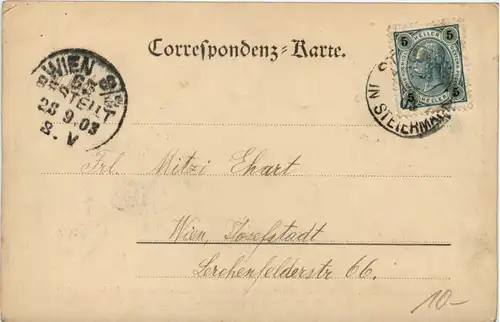 Correspondenz-Karte.
5 HELLER 5
5 HELLER 5
IN STEIERMARK
WIEN 8/1
BESTELLT
28 9.03
8. V
Frl. Mitzi Ehart
Wien, Josefstadt
Lerchenfelderstr 66.
10-